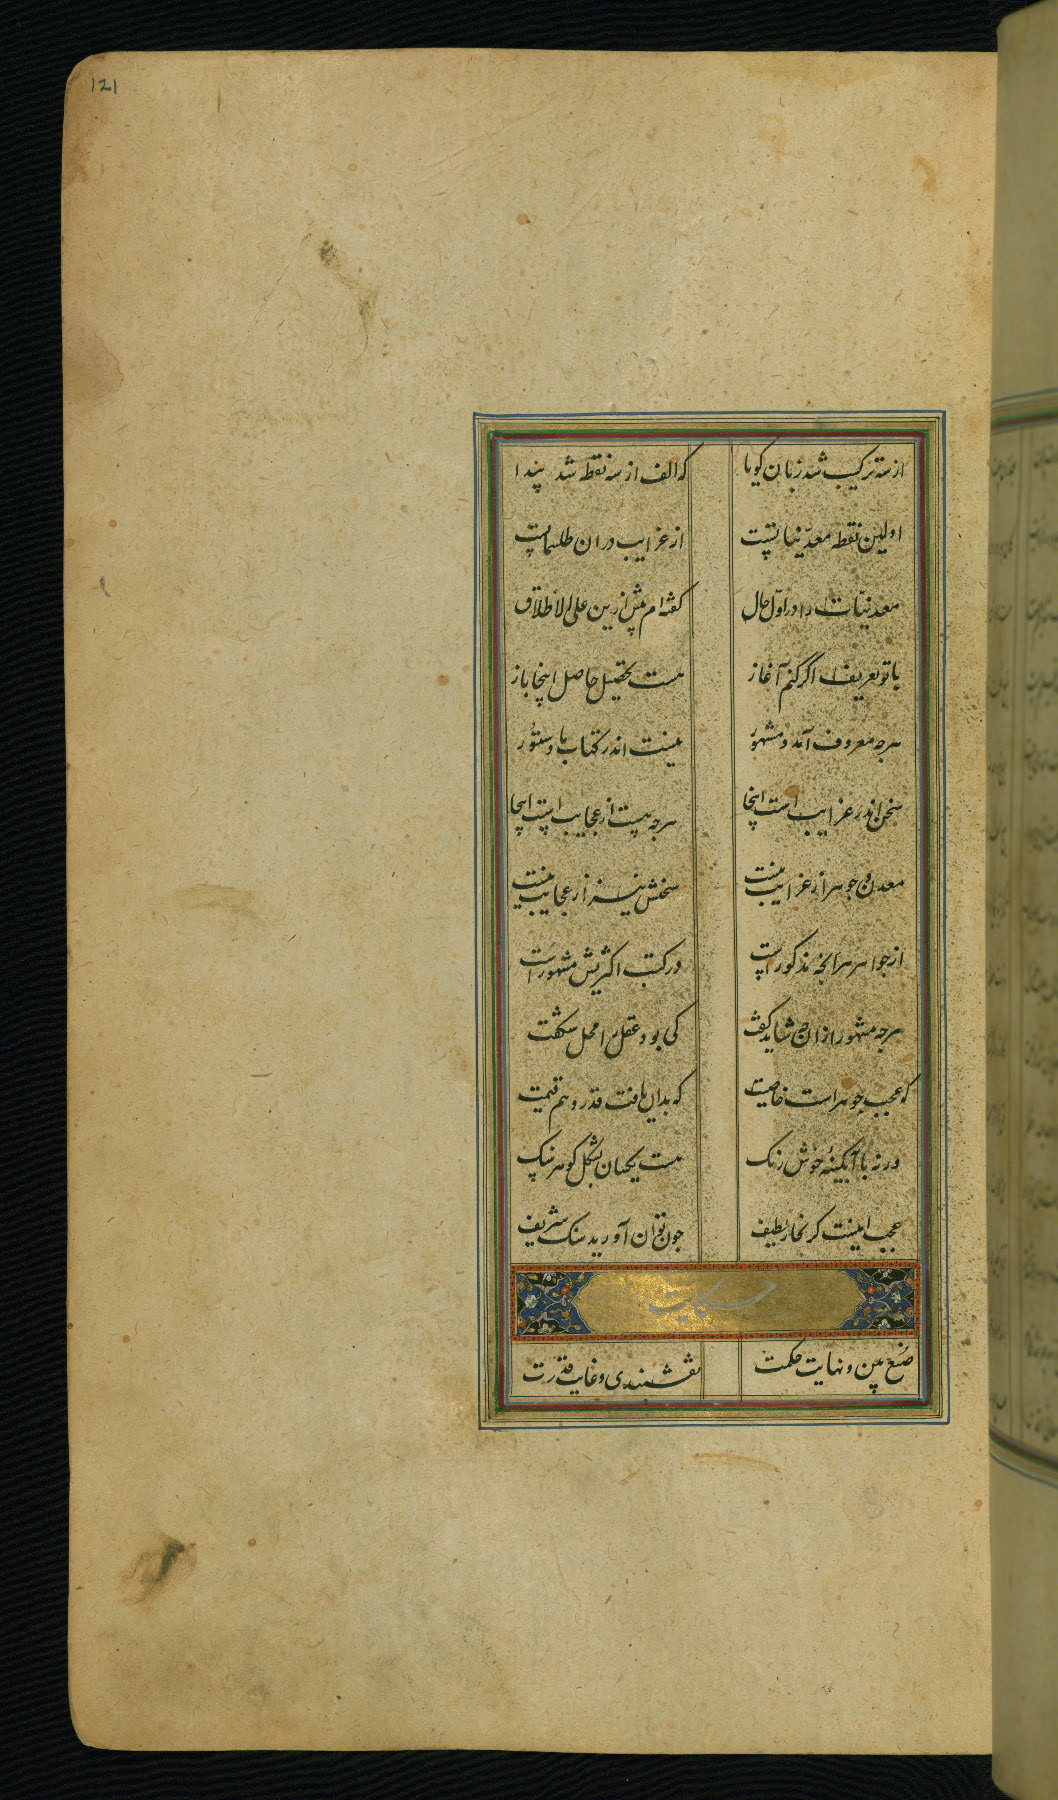 121
از سه ترکیب شد زبان کویا که الف از سه نقطه شد پیدا
اولین نقطه معدنیاتست از غرایب دران طلسماتست
معدنیات را در اول حال کفته‌ام پیش ازین علی الاطلاق
با تو تعریف اکر کنم آغاز هست تحصیل حاصل اینجا باز
هرجه معروف آمد و مشهور نیست اندر کتاب ما دستور
سخن اندر غرایب است اینجا هرجه هست از عجایب است اینجا
معدن و جوهر از غرایب نیست سخنش نیز از عجایب نیست
از جواهر هر آنجه مذکور است در کتب اکثریش مشهور است
هرجه مشهور ازان جه شاید کفت کی بود عقل را محل شکفت
که عجب جوهر است خاصیت که بدان یافت قدر و هم قیمت
ورنه با آبکینهٔ خوش رنک هست یکسان بشکل کوهر سنک
عجب اینست کز بخار لطیف جون توان آورید سنک شریف
حکایت
صنع بین و نهایت حکمت نقشبندی و غایت قدرت